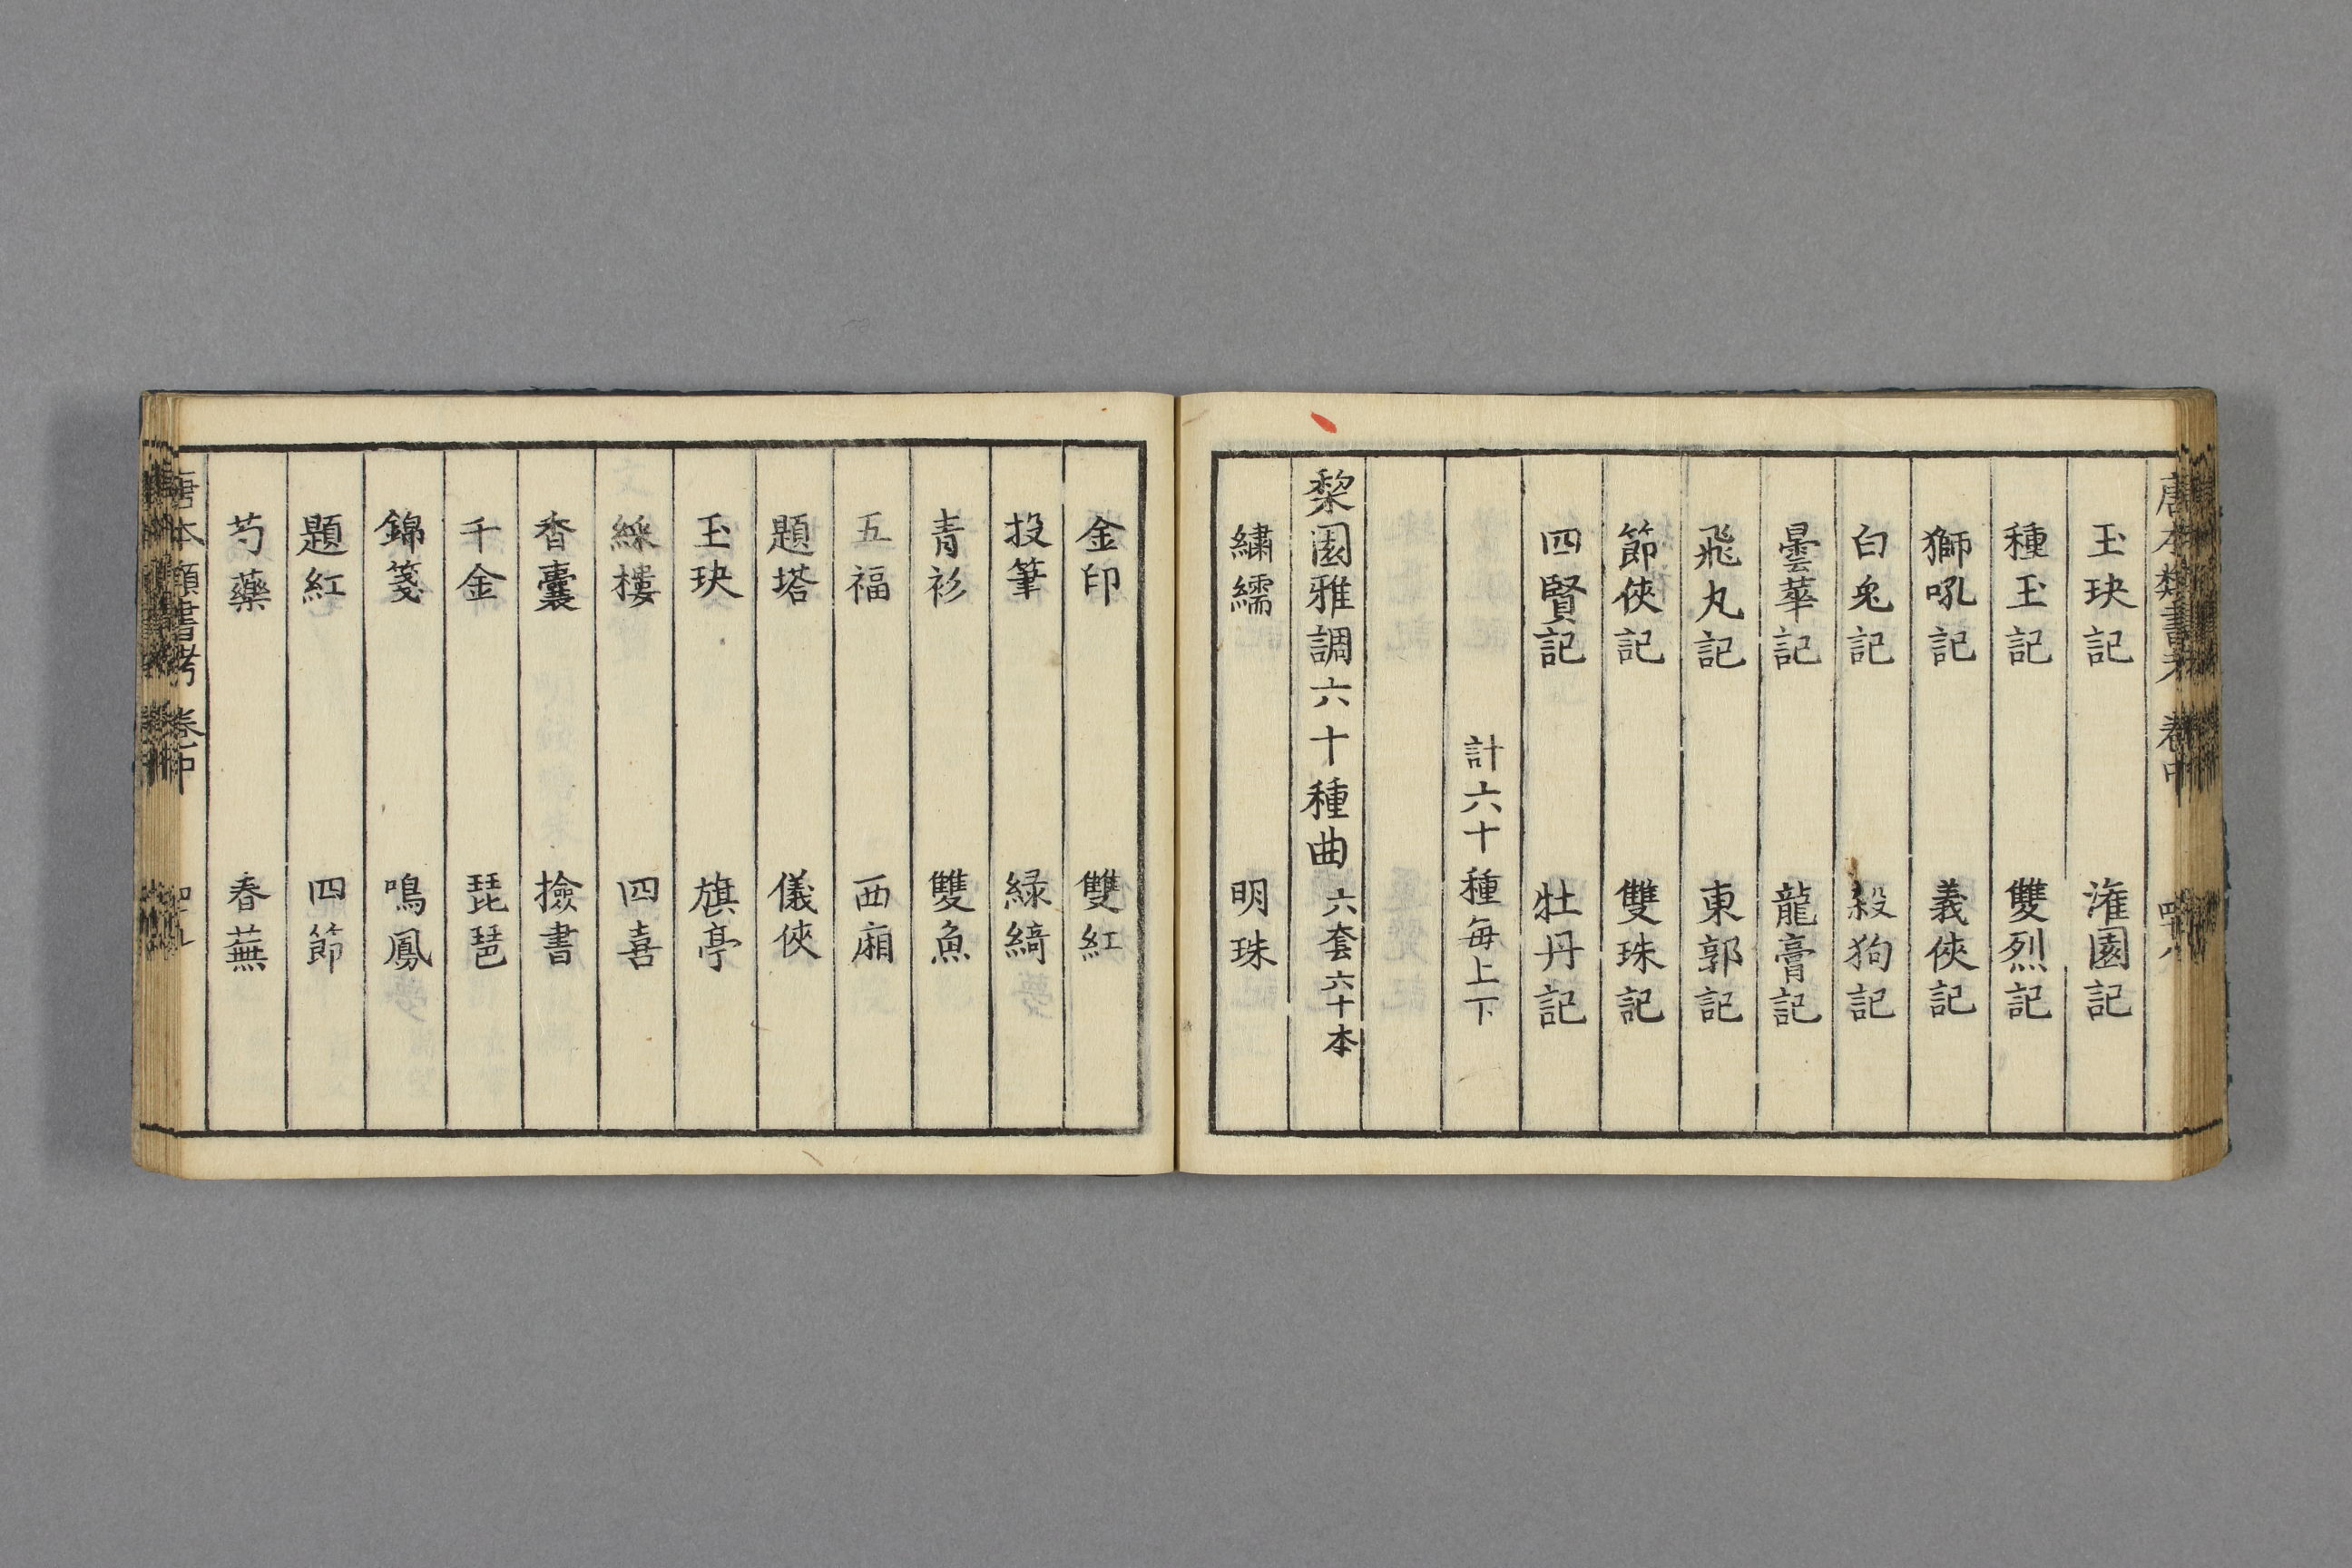 唐本類書考 卷中
玉玦記 潅園記
種玉記 雙烈記
獅吼記 義俠記
白兎記 殺狗記
曇華記 龍膏記
飛丸記 東郭記
節俠記 雙珠記
四賢記 牡丹記
計六十種每上下
棃園雅調六十種曲 六套六十本
繡繻 明珠
金印 雙紅
投筆 緑綺
青衫 雙魚
五福 西廂
題塔 儀俠
玉玦 旗亭
綵樓 四喜
香囊 撿書
千金 琵琶
錦箋 鳴鳳
題紅 四節
芍藥 春蕪
唐本類書考 卷中